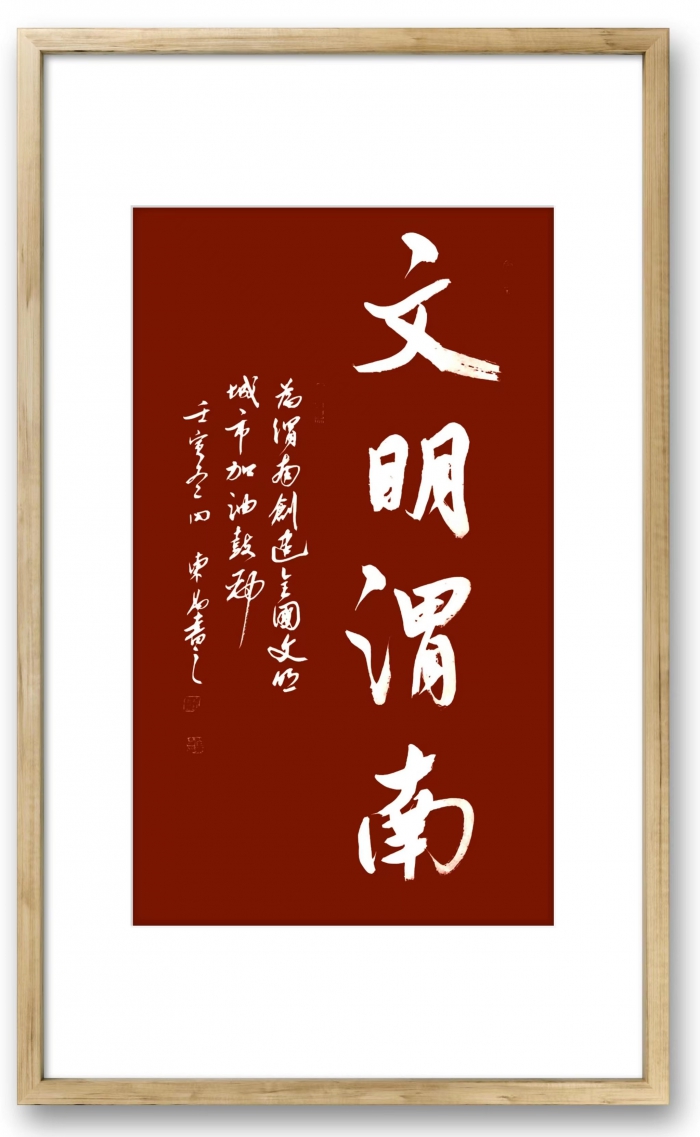 文明渭南
為渭南創建全國文明
城市加油鼓勁
壬寅冬 東 書之